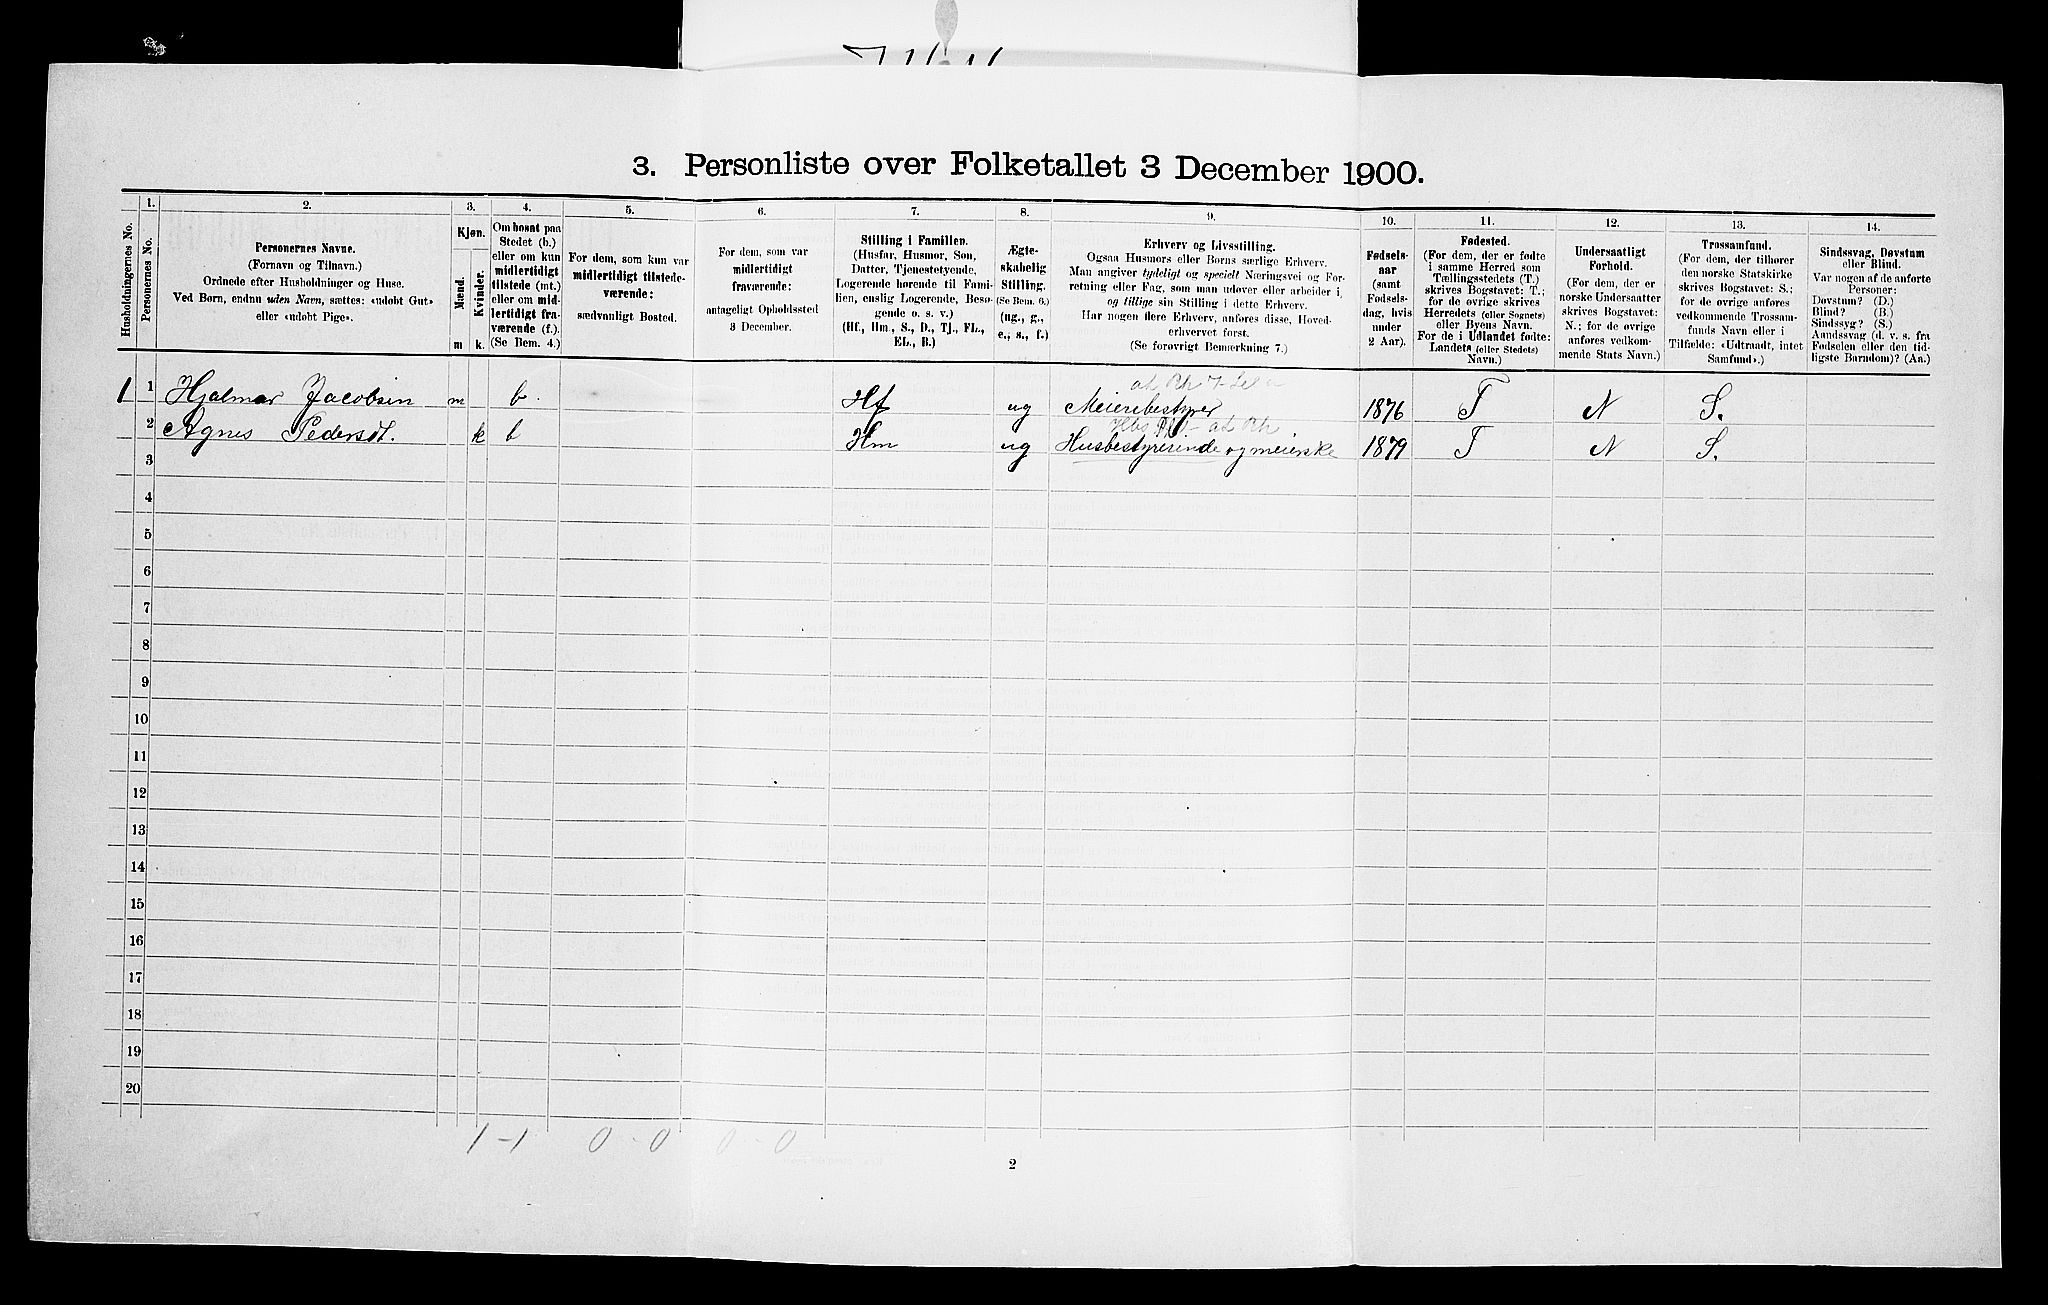 3. Personliste over Folketallet 3 December 1900.
Husholdningernes No.
1.
Personernes No.
2.
Personernes Navne.
(Fornavn og Tilnavn.)
Ordnede efter Husholdninger og Huse.
Ved Børn, endnu uden Navn, sættes: «udøbt Gut»
eller «udøbt Pige».
3.
Kjøn.
Mænd.
Kvinder.
m
k.
4.
Om bosat paa
Stedet (b.)
eller om kun
midlertidigt
tilstede (mt.)
eller om mid-
lertidigt fra-
værende (f.).
(Se Bem. 4.)
5.
For dem, som kun var
midlertidigt tilstede-
værende:
sædvanligt Bosted.
6.
For dem, som var
midlertidigt
fraværende:
antageligt Opholdssted
3 December.
7.
Stilling i Familien.
(Husfar, Husmor, Søn,
Datter, Tjenestetyende,
Logerende hørende til Fami-
lien, enslig Logerende, Besø-
gende o. s. v.)
(Hf., Hm., S., D., Tj., FL.,
EL., B.)
8.
Ægte-
skabelig
Stilling.
(Se Bem. 6.)
(ug., g.,
e., s., f.)
9.
Erhverv og Livsstilling.
Ogsaa Husmors eller Børns særlige Erhverv.
Man angiver tydeligt og specielt Næringsvei og For-
retning eller Fag, som man udøver eller arbeider i,
og tillige sin Stilling i dette Erhverv.
Har nogen flere Erhverv, anføres disse, Hoved-
erhvervet først.
(Se forøvrigt Bemærkning 7.)
10.
Fødsels-
aar
(samt
Fødsels-
dag, hvis
under
2 Aar).
11.
Fødested.
(For dem, der er fødte
i samme Herred som
Tællingsstedets (T.)
skrives Bogstavet: T.;
for de øvrige skrives
Herredets (eller Sognets)
eller Byens Navn.
For de i Udlandet fødte:
Landets (eller Stedets)
Navn.)
12.
Undersaatligt
Forhold.
(For dem, der er
norske Undersaatter
skrives Bogstavet:
N.; for de øvrige
anføres vedkom-
mende Stats Navn.)
13.
Trossamfund.
(For dem, der tilhører
den norske Statskirke
skrives Bogstavet: S.;
for de øvrige anføres
vedkommende Trossam-
funds Navn eller i
Tilfælde: «Udtraadt, intet
Samfund».)
14.
Sindssvag, Døvstum
eller Blind.
Var nogen af de anførte
Personer:
Døvstum? (D.)
Blind? (B.)
Sindssyg? (S.)
Aandssvag (d. v. s. fra
Fødselen eller den tid-
ligste Barndom)? (Aa.)
1 1 Hjalmar Jacobsen m b. Hf ug Meieribestyrer 1876 T N S.
2 Agnes Pedersdt. k b Hm ug Husbestyrerinde og meierske 1879 T N S.
3
4
5
6
7
8
9
10
11
12
13
14
15
16
17
18
19
20
1 - 1 0 - 0 0 - 0
2